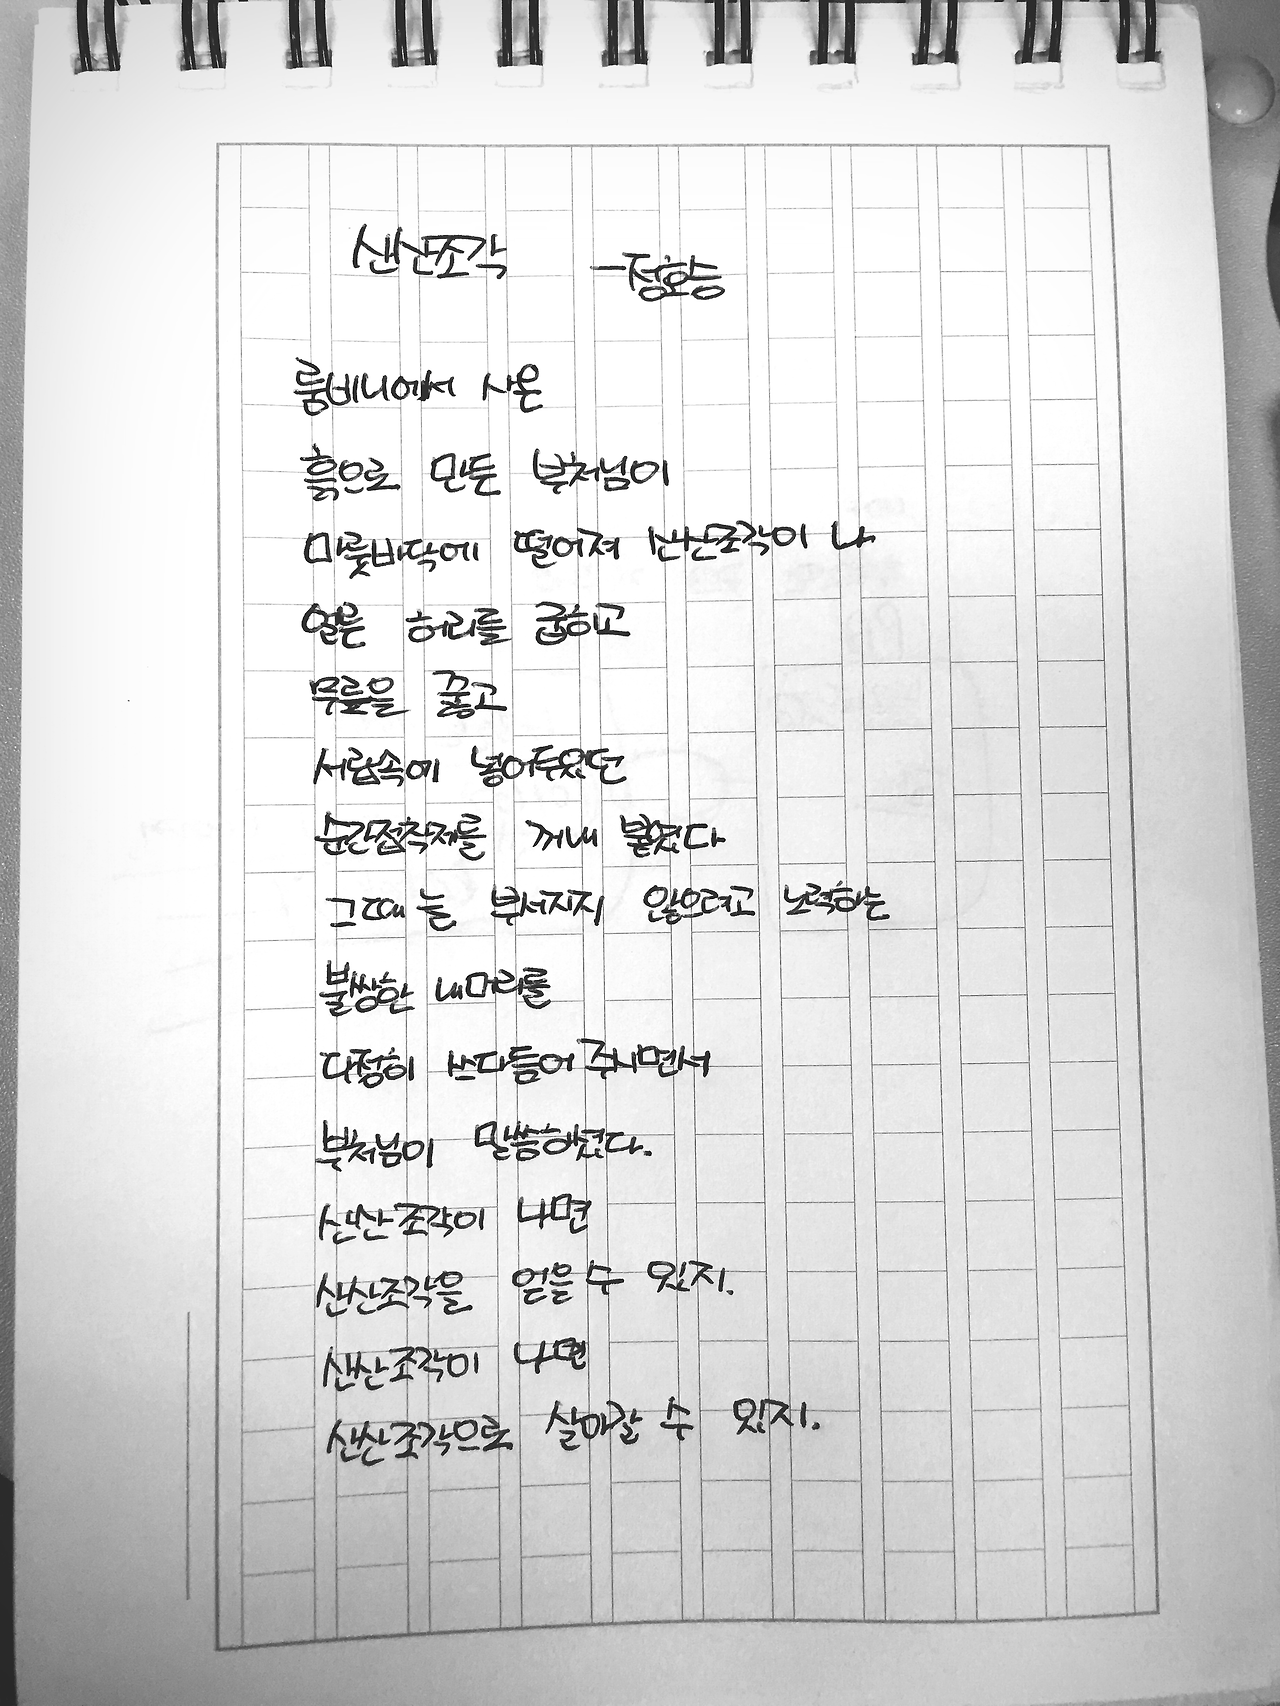 산산조각 -정호승
룸비니에서 사온
흙으로 만든 부처님이
마룻바닥에 떨어져 산산조각이 나
얼른 허리를 굽히고
무릎을 꿇고
서랍속에 넣어두었던
순간접착제를 꺼내 붙였다
그때 늘 부서지지 않으려고 노력하는
불쌍한 내머리를
다정히 쓰다듬어 주시면서
부처님이 말씀하셨다.
산산조각이 나면
산산조각을 얻을 수 있지.
산산조각이 나면
산산조각으로 살아갈 수 있지.